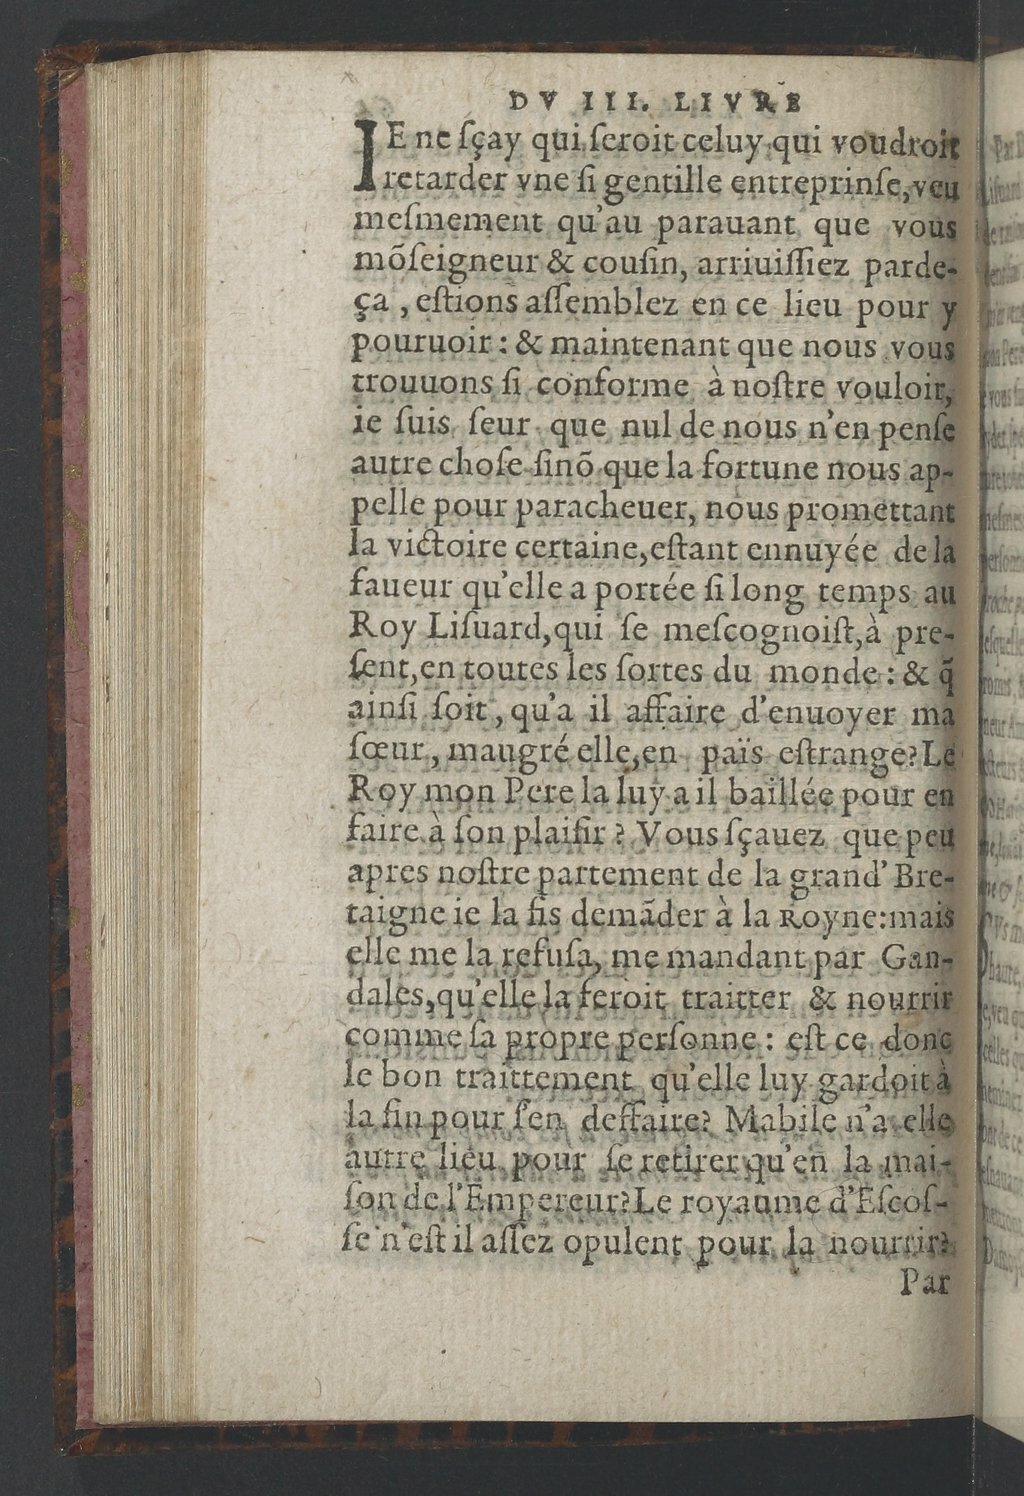 DV III. LIVRE
IE ne ſçay qui ſeroit celuy qui voudroit
retarder vne ſi gentille entreprinſe, veu
meſmement qu'au parauant que vous
mõſeigneur & couſin, arriuiſſiez parde-
ça, eſtions aſſemblez en ce lieu pour y
pouruoir: & maintenant que nous vous
trouuons ſi conforme à noſtre vouloir,
ie ſuis ſeur que nul de nous n'en penſe
autre choſe ſinõ que la fortune nous ap-
pelle pour paracheuer, nous promettant
la victoire certaine, eſtant ennuyée de la
faueur qu'elle a portée ſi long temps au
Roy Liſuard, qui ſe meſcognoiſt, à pre-
ſent, en toutes les ſortes du monde: & q̃
ainſi ſoit, qu'a il affaire d'enuoyer ma
ſœur, maugré elle, en païs eſtrange? Le
Roy mon Pere la luy a il baillée pour en
faire à ſon plaiſir? Vous ſçauez que peu
apres noſtre partement de la grand' Bre-
taigne ie la fis demãder à la Royne: mais
elle me la refuſa, me mandant par Gan-
dales, qu'elle la feroit traitter & nourrir
comme ſa propre perſonne: eſt ce donc
le bon traittement qu'elle luy gardoit à
la fin pour ſ'en deffaire? Mabile n'a elle
autre lieu pour ſe retirer qu'en la mai-
ſon de l'Empereur? Le royaume d'Eſcoſ-
ſe n'eſt il aſſez opulent pour la nourrir?
Par